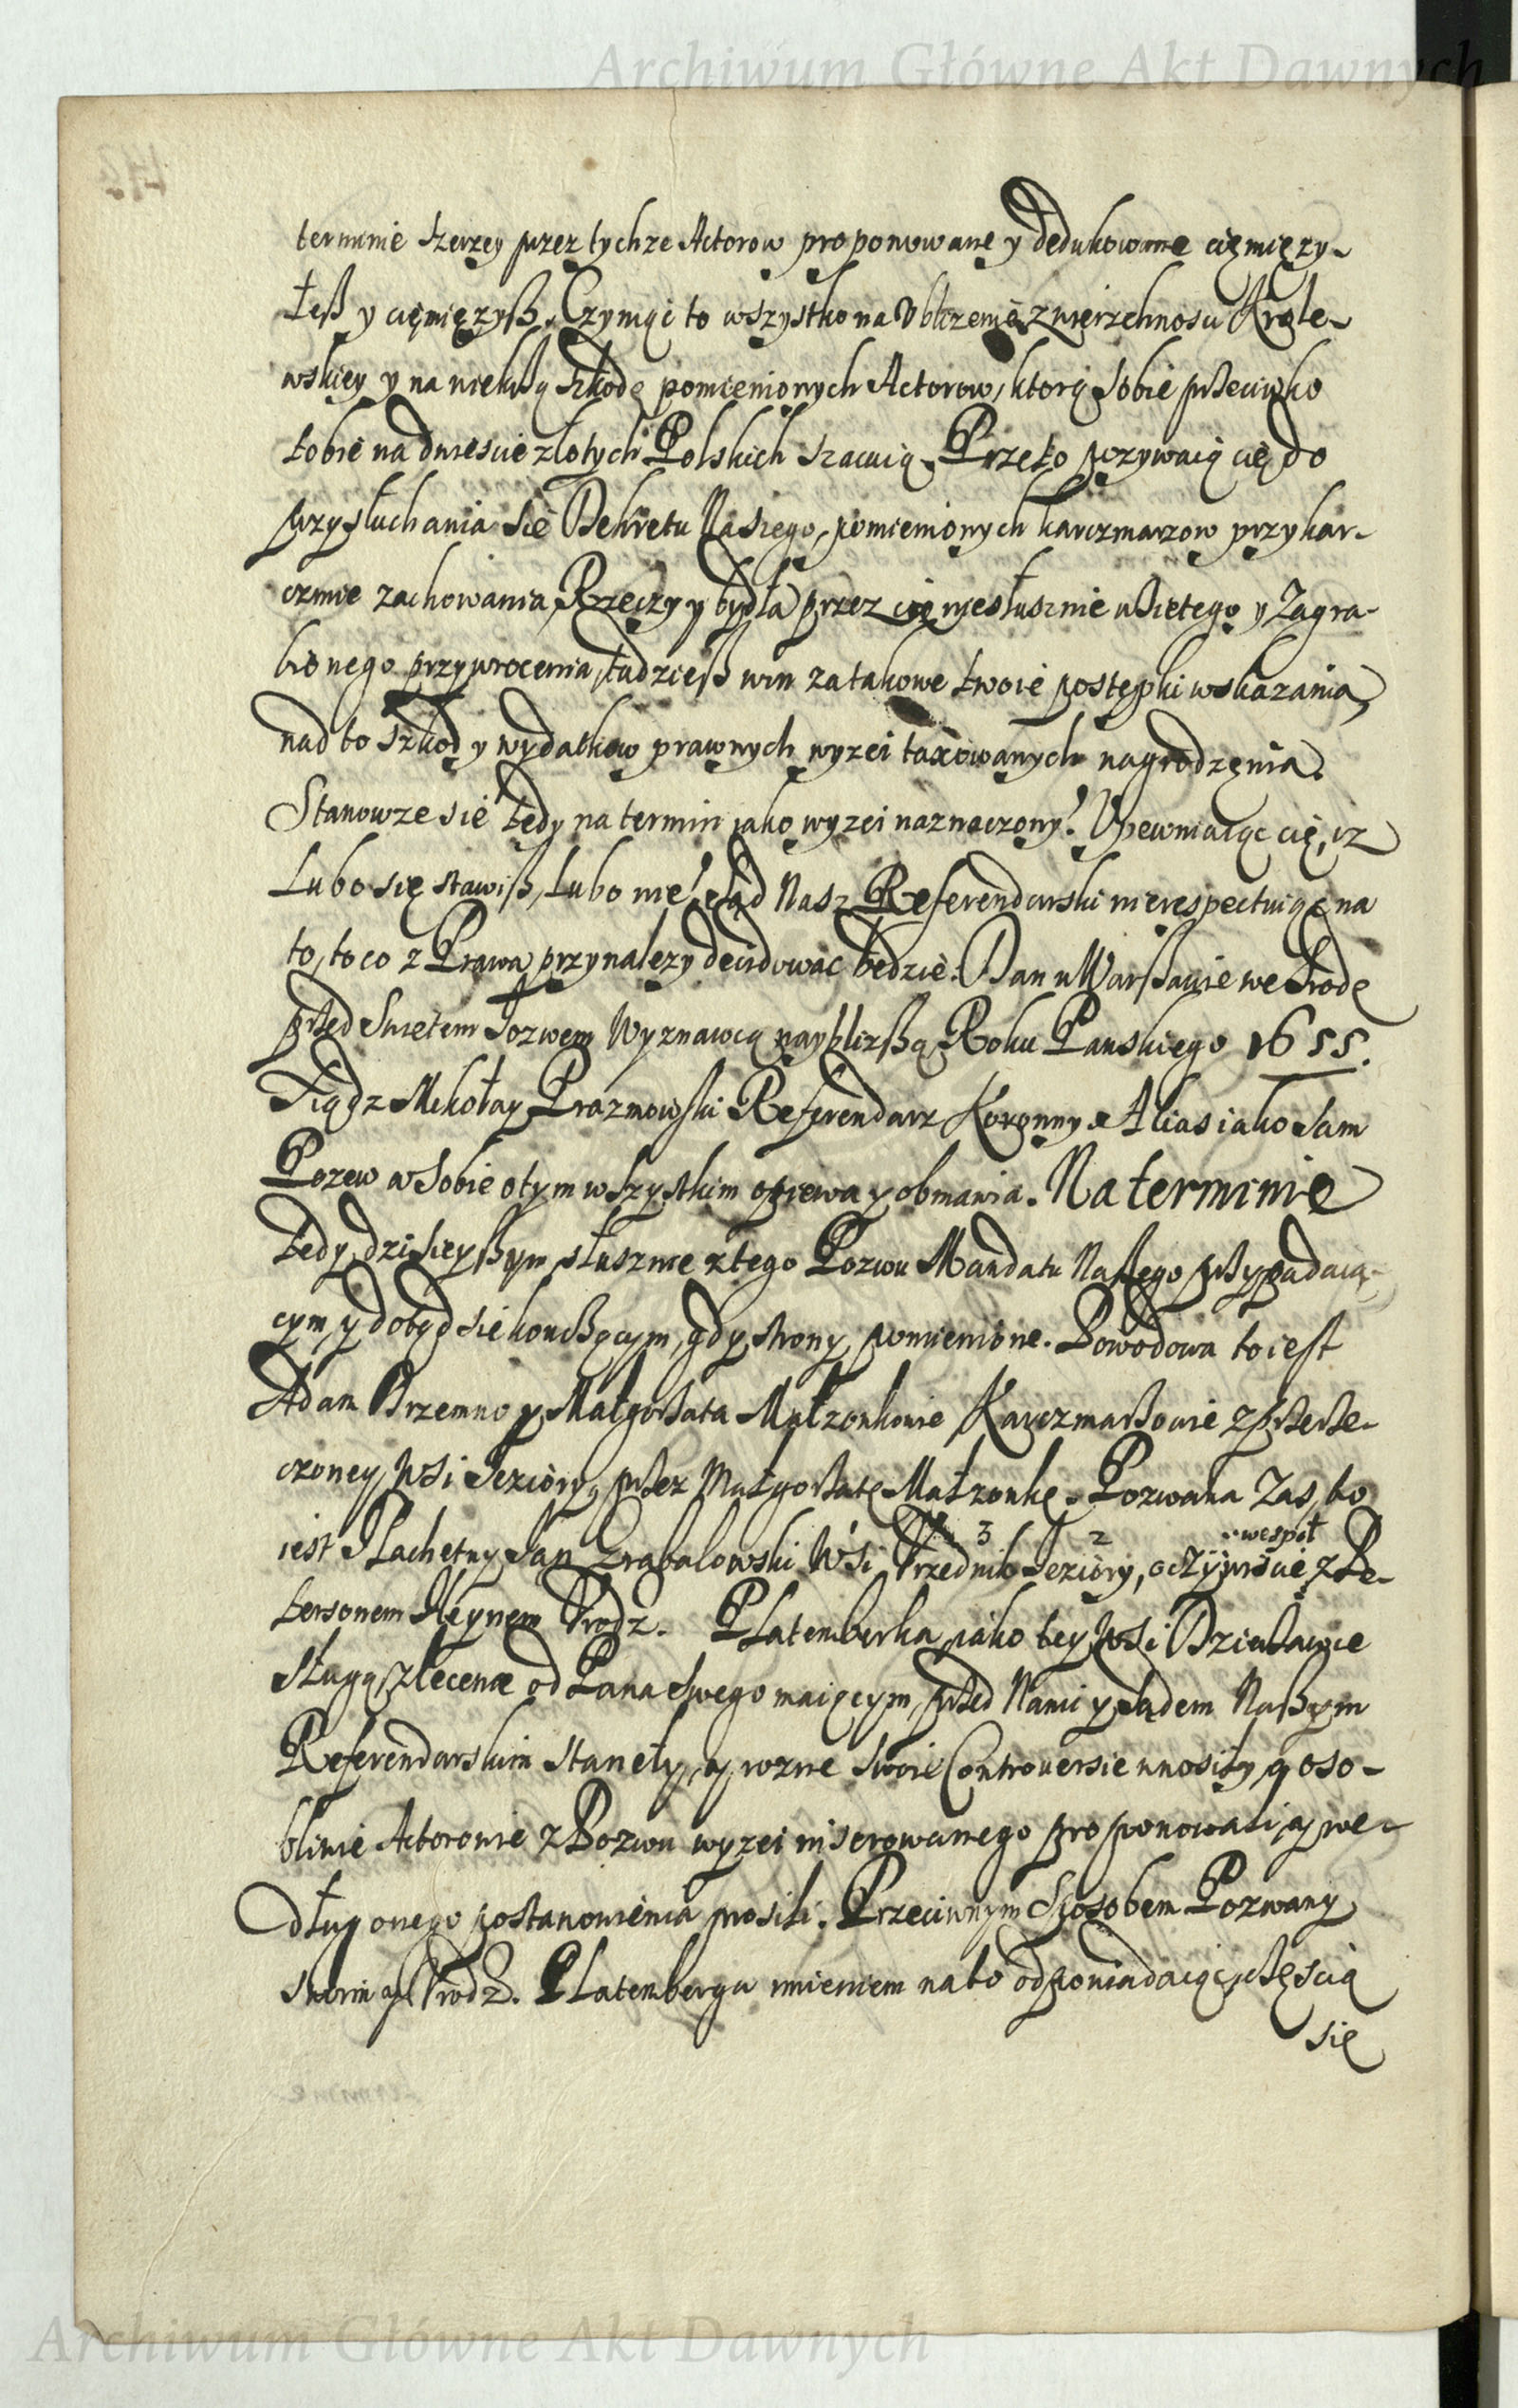 Archiwum Główne Akt Dawnych
terminie szerzey przez tychze Actorow proponowane y dedukowane ciemięzy-
łeß y ciemięzyß. Czyniąc to wszystko na Ubliżenie zwierzchnosci Krole-
wskiey y na niemałą szkodę pomienionych Actorow, ktorą sobie przeciwko
tobie na dwiescie złotych Polskich szacuią. Przeto pozywaią cię do
przysłuchania sie Dekretu Naszego, pomienionych karczmarzow przy kar-
czmie zachowania, Rzeczy y bydła przez cię niesłusznie wzietego y zagra-
bionego przywrocenia, tudzieß win za takowe twoie postępki wskazania,
nad to szkod y wydatkow prawnych wyzei taxowanych nagrodzenia.
Stanowze sie tedy na termin jako wyzei naznaczony. Upewniaiąc cię, iz
lubo się stawiß, lubo nie, Sąd Nasz Referendarski nie respectuiąc na
to, to co z Prawa przynalezy decidować będzie. Dan w Warßawie we Srodę
przed Swiętem Jozwem Wyznawcą naybliżßą Roku Panskiego 1655.
Xiądz Mikołay Prazmowski Referendarz Koronny. Alias iako sam
Pozew w sobie o tym wszystkim opiewa y obmawia. Na terminie
tedy dzisieyßym słusznie z tego Pozwu Mandatu Naßego przypadaią-
cym, y dotąd sie konczącym, gdy strony pomienione. Powodowa to iest
Adam Brzemno y Małgorzata Małzonkowie Karczmarzowie z przerze-
czoney wsi Jeziory, przez Małgorzatę Małzonkę. Pozwana zas, to
iest Slachetny Jan Zrabalowski Wsi Urzednik Jeziory, oczywiscie z Pe-
3 2 wespoł
tersonem Heynem Urodz. Platemberka, iako tey Wsi Dzierzawce
sługą, zlecenie od Pana swego maiącym, przed Nami y Sądem Naßym
Referendarskim stanęły, y rozne swoie Controversie wnosiły, y oso-
bliwie Actorowie z Pozwu wyzei inserowanego proponowali, y we-
dług onego postanowienia prosili. Przeciwnym sposobem Pozwany
swoim y Urodz. Platemberga imieniem na to odpowiadaiąc, częscią
się
Archiwum Główne Akt Dawnych